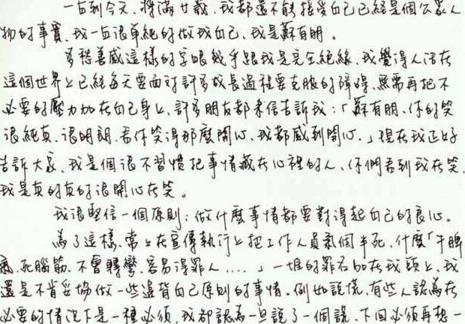 一直到今天，將滿廿歲，我都還不能接受自己已經是個公眾人
物的事實，我一直很單純的做我自己，我是蘇有朋。
多愁善感這樣的字眼幾乎跟我是完全絕緣，我覺得人活在
這個世界上已經每天要面對許多成長過程要克服的障礙，無需再把不
必要的壓力加在自己身上，許多朋友都來信告訴我：「蘇有朋，你的笑
很純真、很明朗，看你笑得那麼開心，我都感到開心。」現在我正好
告訴大家，我是個很不習慣把事情藏在心裡的人，你們看到我在笑，
我是真的真的很開心在笑。
我很堅信一個原則：做什麼事情都要對得起自己的良心。
為了這樣，常常在宣傳執行上把工作人員氣個半死，什麼「牛脾
氣、死腦筋、不會轉彎、容易得罪人．．．．」一堆的罪名加在我頭上，我
還是不肯妥協做一些違背自己原則的事情。例如說謊，有些人認為在
必要的情況下是一種必須，我卻認為一旦說了一個謊，下回必須再想一